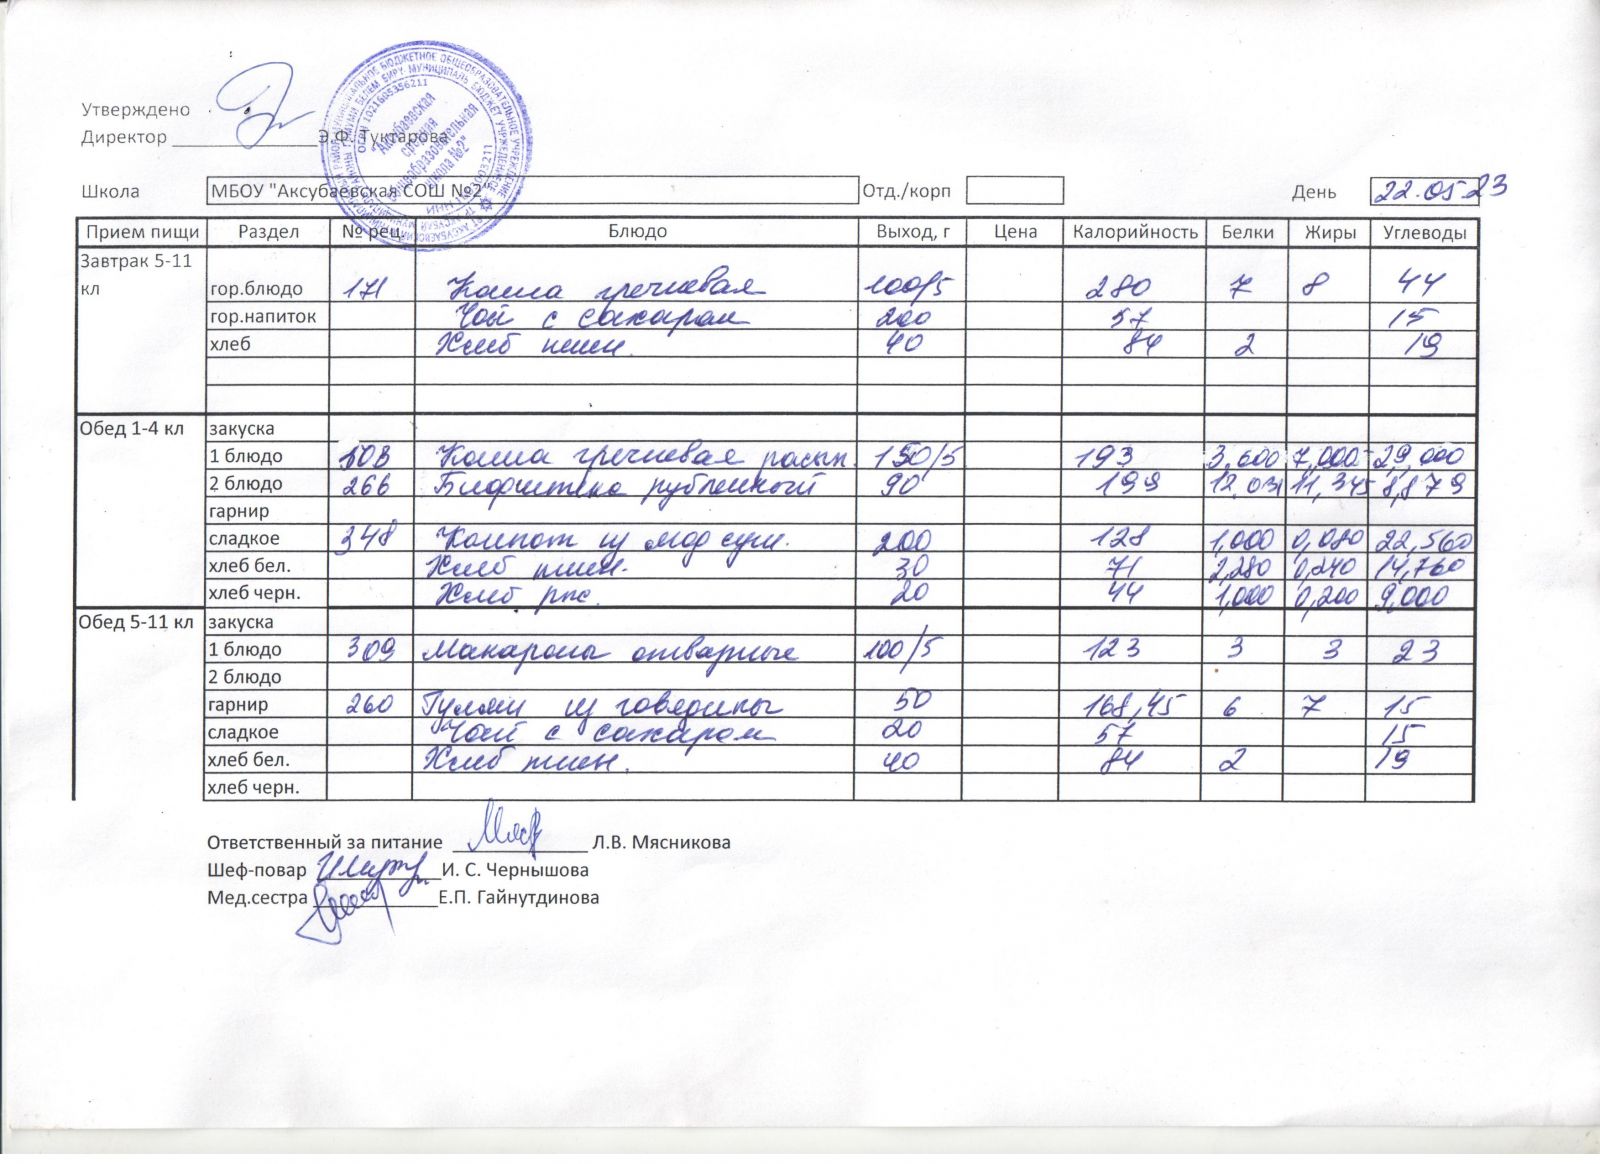 Утверждено
Директор Э.Ф. Туктарова
МУНИЦИПАЛЬНОЕ БЮДЖЕТНОЕ ОБЩЕОБРАЗОВАТЕЛЬНОЕ УЧРЕЖДЕНИЕ
ОГРН 1021605356211
"Аксубаевская
средняя
общеобразовательная
школа №2"
Школа МБОУ "Аксубаевская СОШ №2" Отд./корп День 22.05.23
Прием пищи Раздел № рец. Блюдо Выход, г Цена Калорийность Белки Жиры Углеводы
Завтрак 5-11
кл гор.блюдо 171 Каша гречневая 100/5 280 7 8 44
гор.напиток Чай с сахаром 200 57 15
хлеб Хлеб пшен. 40 84 2 19
Обед 1-4 кл закуска
1 блюдо 303 Каша гречневая рассып. 150/5 193 3,600 7,000 29,000
2 блюдо 266 Бифштекс рубленный 90 199 12,031 11,345 8,879
гарнир
сладкое 348 Компот из 200 128 1,000 0,080 22,560
хлеб бел. Хлеб пшен. 30 71 2,280 0,240 14,760
хлеб черн. Хлеб рж. 20 44 1,000 0,200 9,000
Обед 5-11 кл закуска
1 блюдо 309 Макароны отварные 100/5 123 3 3 23
2 блюдо
гарнир 260 Гуляш из говядины 50 168,45 6 7 15
сладкое Чай с сахаром 20 57 15
хлеб бел. Хлеб пшен. 40 84 2 19
хлеб черн.
Ответственный за питание Л.В. Мясникова
Шеф-повар И. С. Чернышова
Мед.сестра Е.П. Гайнутдинова